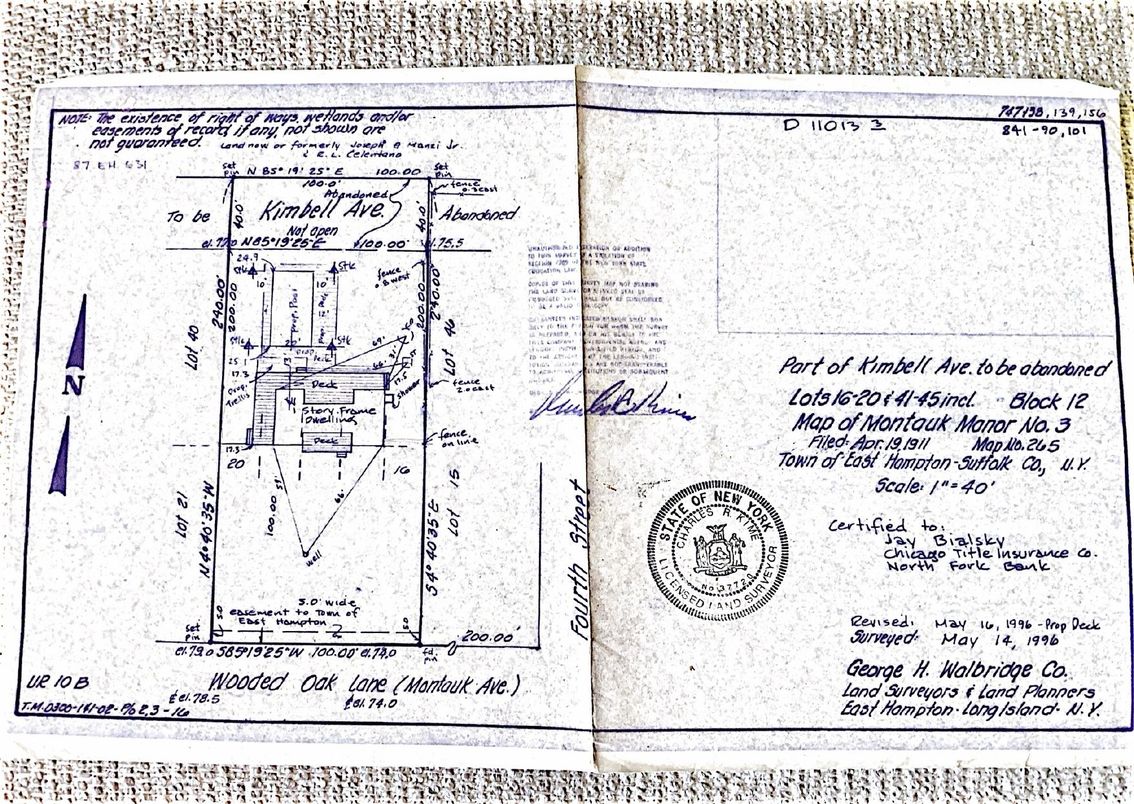 NOTE: The existence of right of ways, wetlands and/or
easements of record if any, not shown are
not guaranteed.
Land now or formerly Joseph A Manzi Jr.
& R.L. Celentano
87 EH 631
747138, 139, 156
841-90, 101
D 11013 3
set pin
N 85° 19' 25" E 100.00
set pin
100.0'
Abandoned
fence
0.3 east
To be
40.0'
Kimbell Ave.
40.0'
Abandoned
Not open
el. 77.0 N 85°19'25"E 100.00' el. 75.5
24.9
Stk
Stk
10'
10'
Prop. Pool
fence
.8 west
240.00'
200.00'
200.00'
240.00'
Lot 40
Lot 46
Stk
20'
Stk
69'
25.1
Prop. Deck
66'
17.3
13'
17.5
Prop.
Trellis
Deck
shower
fence
2.0 east
Story Frame
Dwelling
Deck
17.3
fence
on line
20
16
Lot 21
Lot 15
N 4° 40' 35" W
100.00
S 4° 40' 35" E
66'
well
Fourth Street
5.0' wide
easement to Town of
East Hampton
5.0
5.0
set
pin
fd.
pin
200.00'
el. 79.0 S 85°19'25"W 100.00' el. 74.0
Wooded Oak Lane (Montauk Ave.)
el. 78.5
el. 74.0
UR 10 B
T.M. 0300-
Part of Kimbell Ave. to be abandoned
Lots 16-20 & 41-45 incl. Block 12
Map of Montauk Manor No. 3
Filed: Apr. 19, 1911 Map No. 265
Town of East Hampton - Suffolk Co., N.Y.
Scale: 1" = 40'
STATE OF NEW YORK
CHARLES R KIME
No 37720
LICENSED LAND SURVEYOR
Certified to:
Jay Bialsky
Chicago Title Insurance Co.
North Fork Bank
Revised: May 16, 1996 - Prop Deck
Surveyed: May 14, 1996
George H. Walbridge Co.
Land Surveyors & Land Planners
East Hampton - Long Island - N.Y.
N